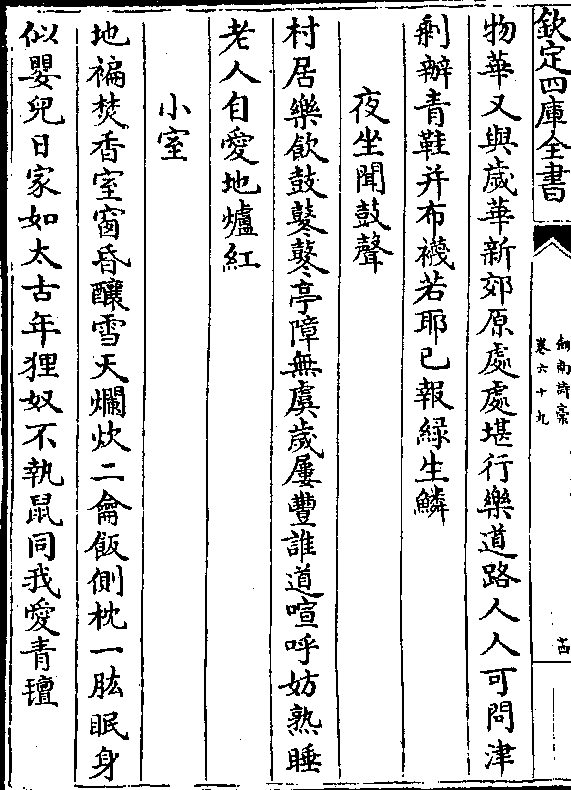 欽定四庫全書
劍南詩稾
卷六十九
十四
物華又與歲華新郊原處處堪行樂道路人人可問津
剩辦青鞋并布襪若耶已報緑生鱗
夜坐聞鼓聲
村居樂飲鼓鼕鼕亭障無虞歲屢豐誰道喧呼妨熟睡
老人自愛地爐紅
小室
地褊焚香室窗昏釀雪天爛炊二龠飯側枕一肱眠身
似嬰兒日家如太古年狸奴不執鼠同我愛青氊